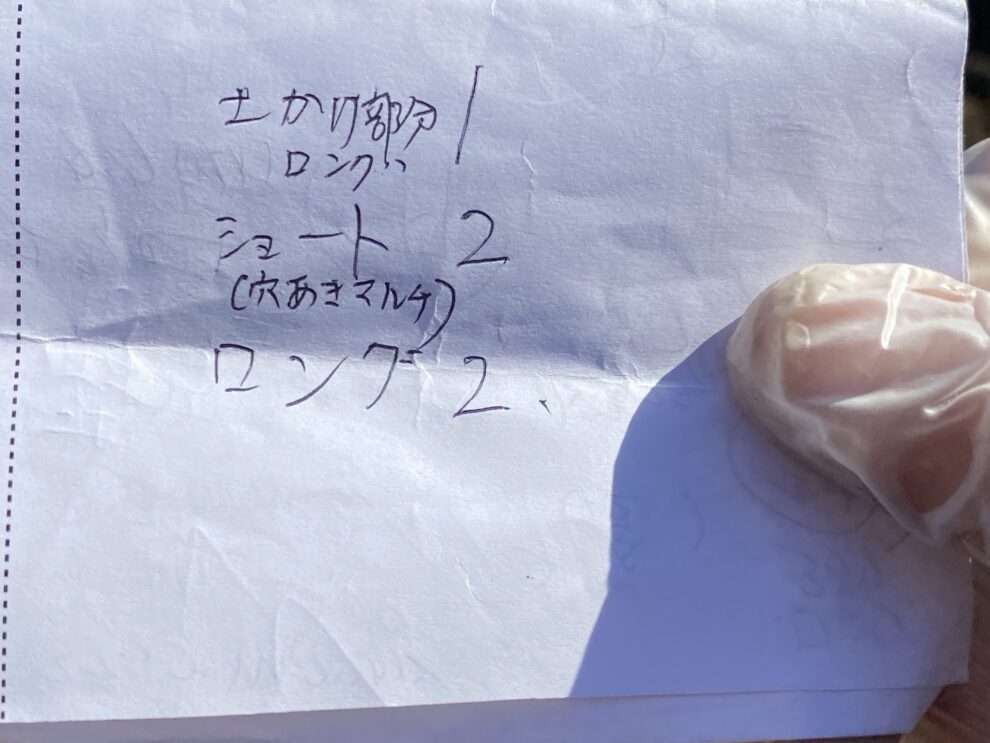 土かけ部分 1
ロング
ショート 2
(穴あきマルチ)
ロング 2.